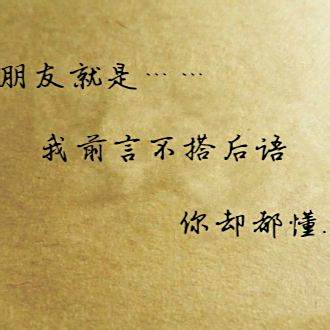 朋友就是……
我前言不搭后语
你却都懂.